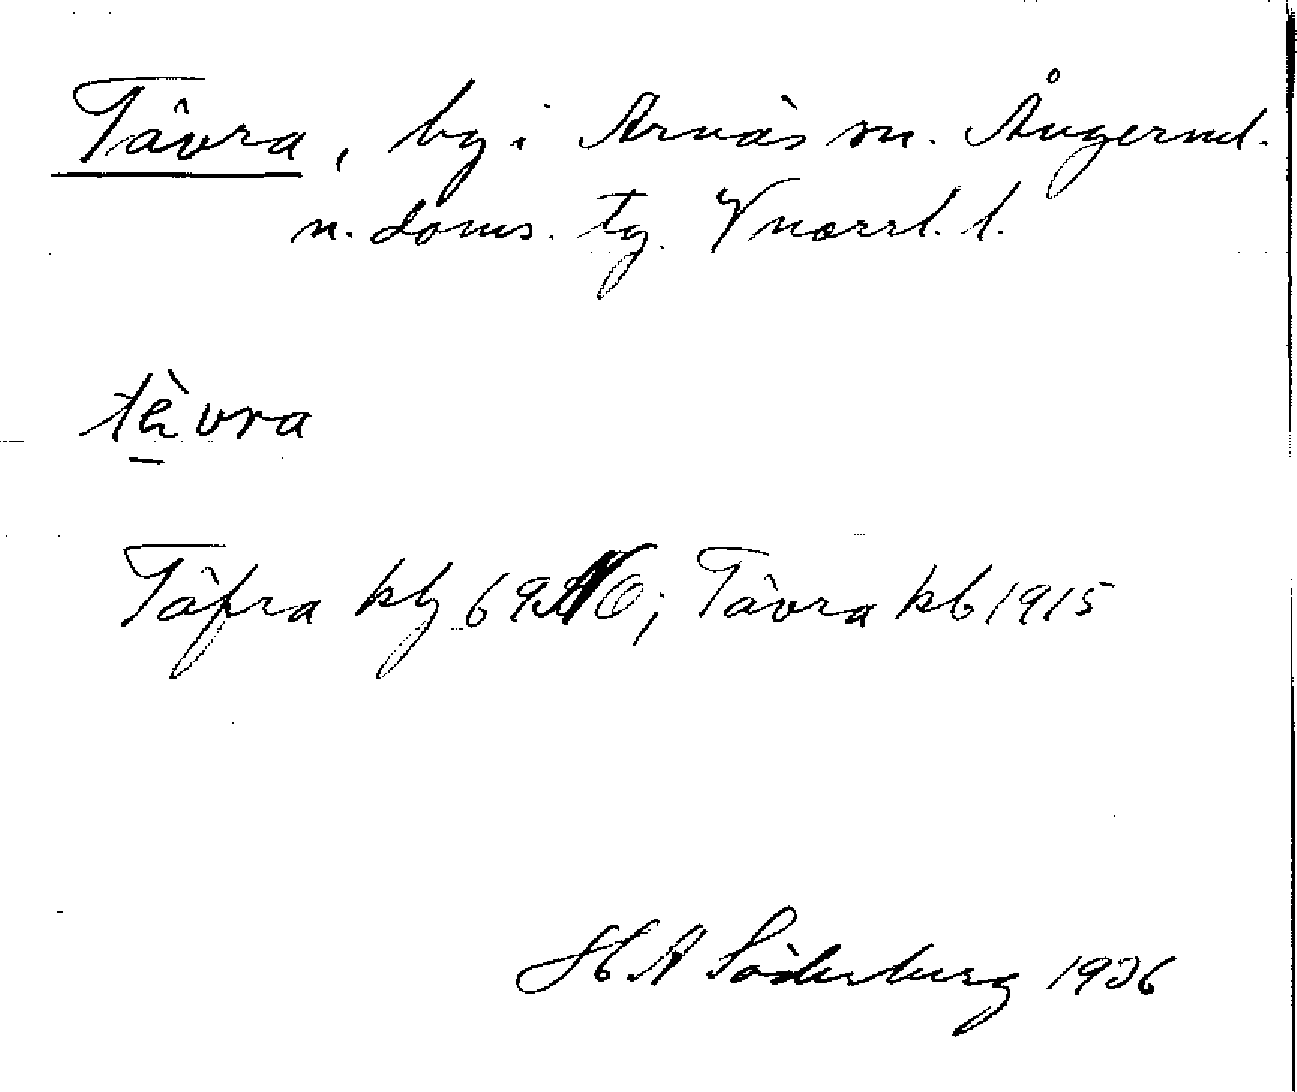 Tävra, by i Arnäs sn. Ångerml.
n. doms. tg. Vnorrl. l.
tèvra
Täfra kbg 69 NO; Tävra kb 1915
H A Söderberg 1926